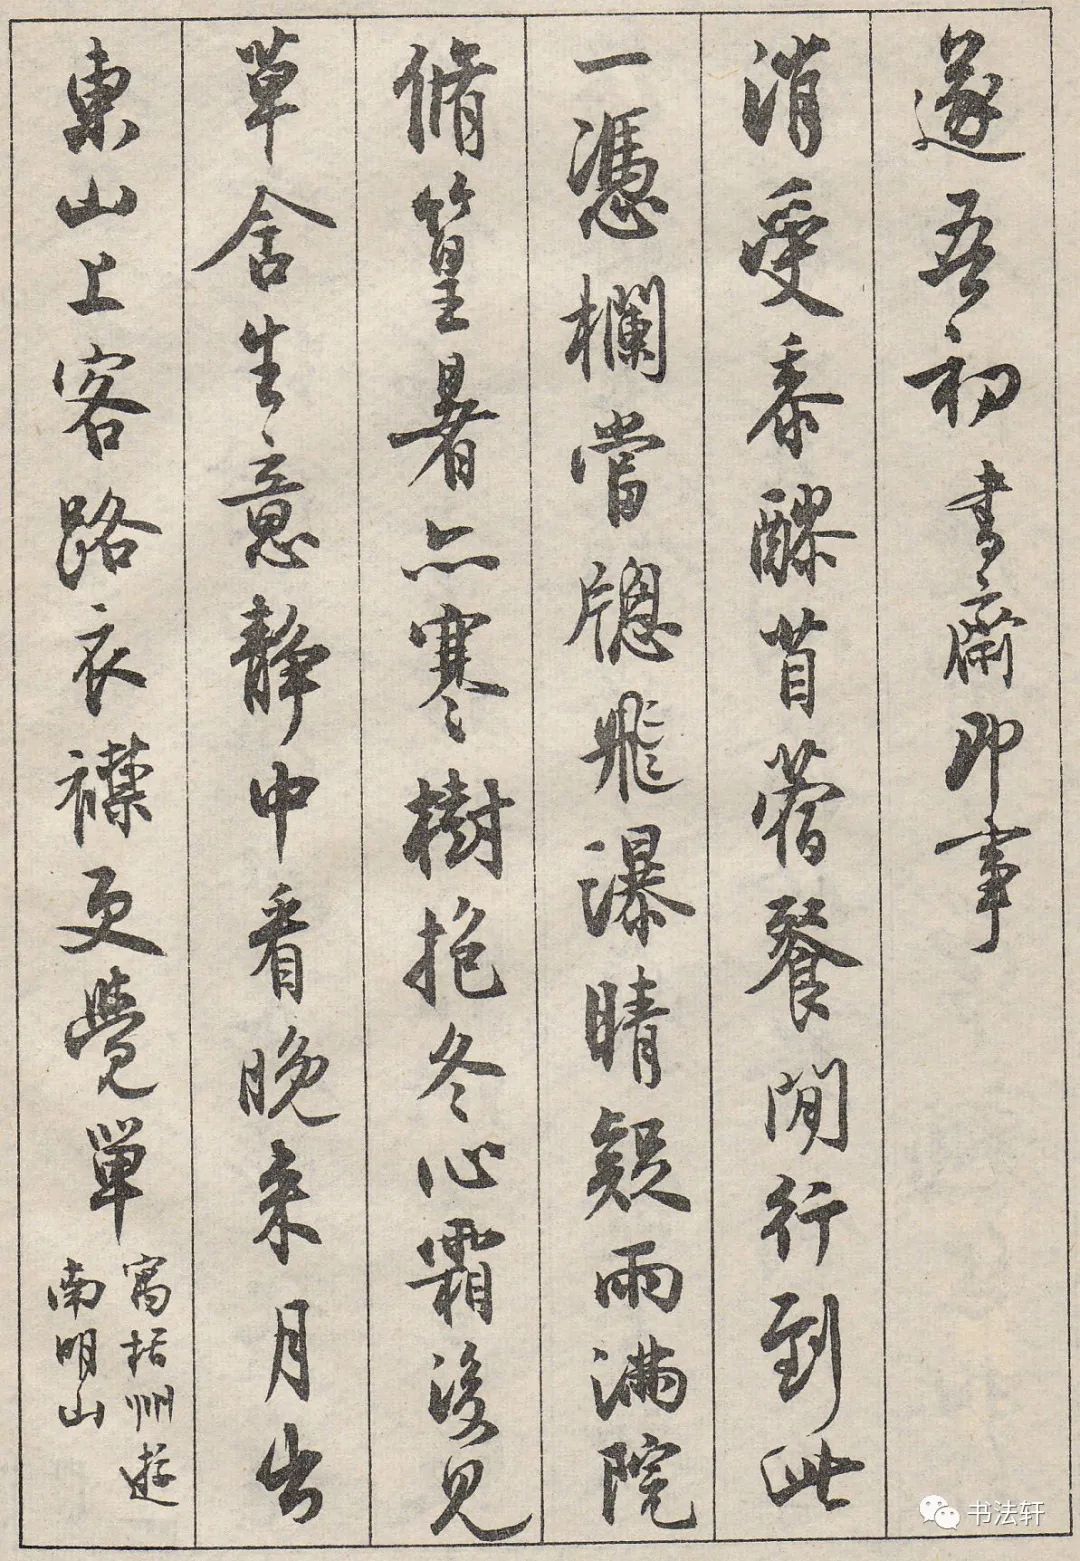 遂吾初 書齋即事
消受黍醪苜蓿餐閒行到此
一憑欄當牕飛瀑晴疑雨滿院
脩篁暑亦寒樹抱冬心霜後見
草含生意靜中看晚来月出
東山上客路衣襟更覺單 寓栝州遊
南明山
书法轩